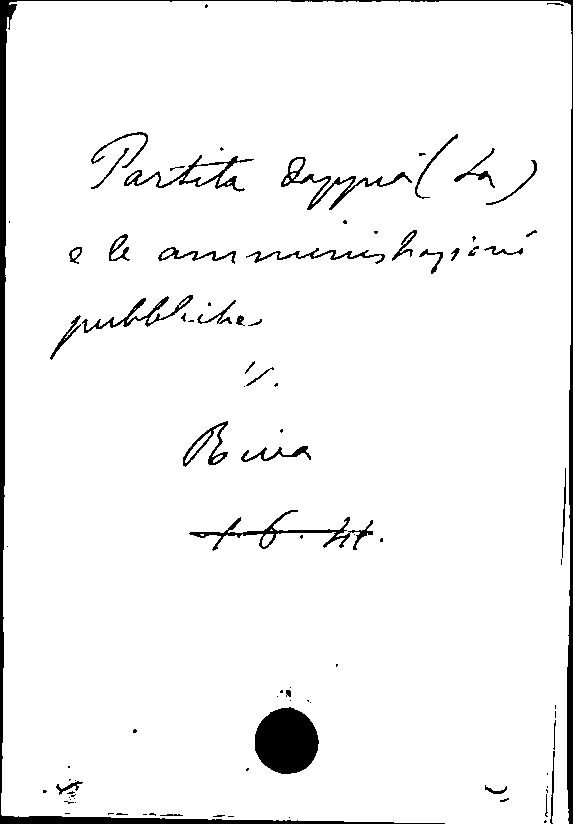 Partita doppia (La)
e le amministrazioni
pubbliche
V.
Riva